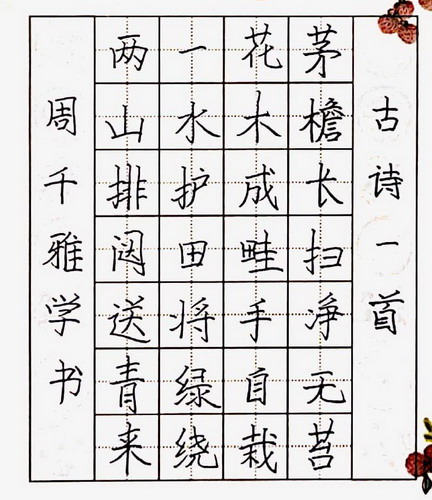 古诗一首
茅檐长扫净无苔
花木成畦手自栽
一水护田将绿绕
两山排闼送青来
周千雅学书